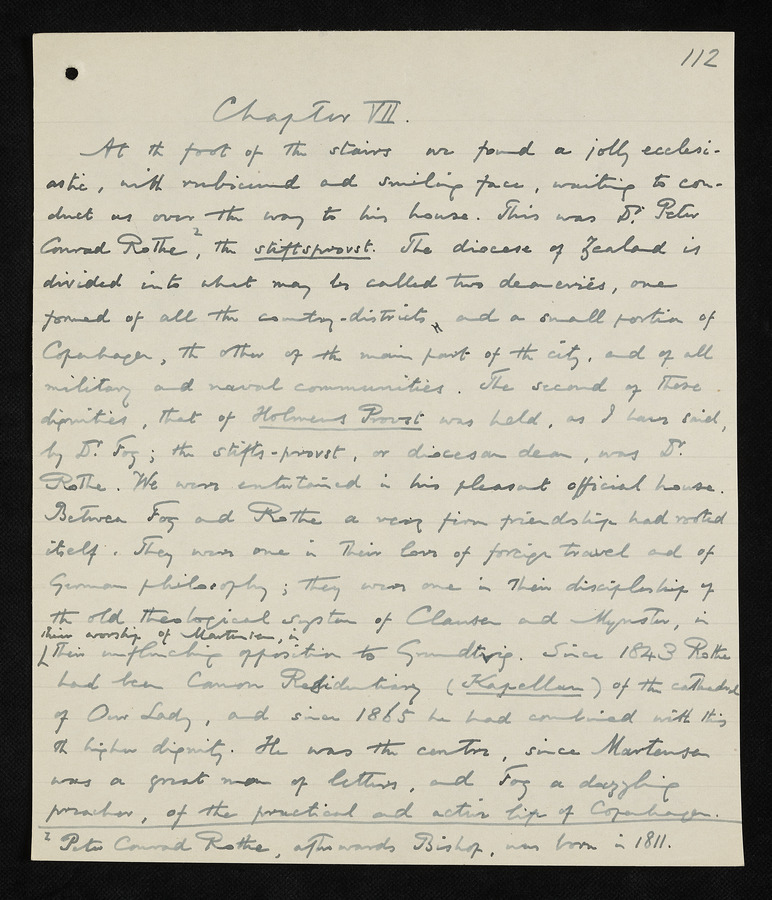 112
Chapter VII.
At the foot of the stairs we found a jolly ecclesi-
astic, with rubicund and smiling face, waiting to con-
duct us over the way to his house. This was Dr. Peter
Conrad Rothe 2, the stiftsprovst. The diocese of Zealand is
divided into what may be called two deaneries, one
formed of all the country-districts, and a small portion of
Copenhagen, the other of the main part of the city, and of all
military and naval communities. The second of these
dignities, that of Holmens Provst was held, as I have said,
by Dr. Fog; the stifts-provst, or diocesan dean, was Dr.
Rothe. We were entertained in his pleasant official house.
Between Fog and Rothe a very firm friendship had rooted
itself. They were one in their love of foreign travel and of
German philosophy; they were one in their discipleship of
the old theological system of Clausen and Mynster, in
their worship of Martensen, in
their unflinching opposition to Grundtvig. Since 1843 Rothe
had been Canon Residentiary (Kapellan) of the cathedral
of Our Lady, and since 1865 he had combined with this
the higher dignity. He was the centre, since Martensen
was a great man of letters, and Fog a dazzling
preacher, of the practical and active life of Copenhagen.
2 Peter Conrad Rothe, afterwards Bishop, was born in 1811.